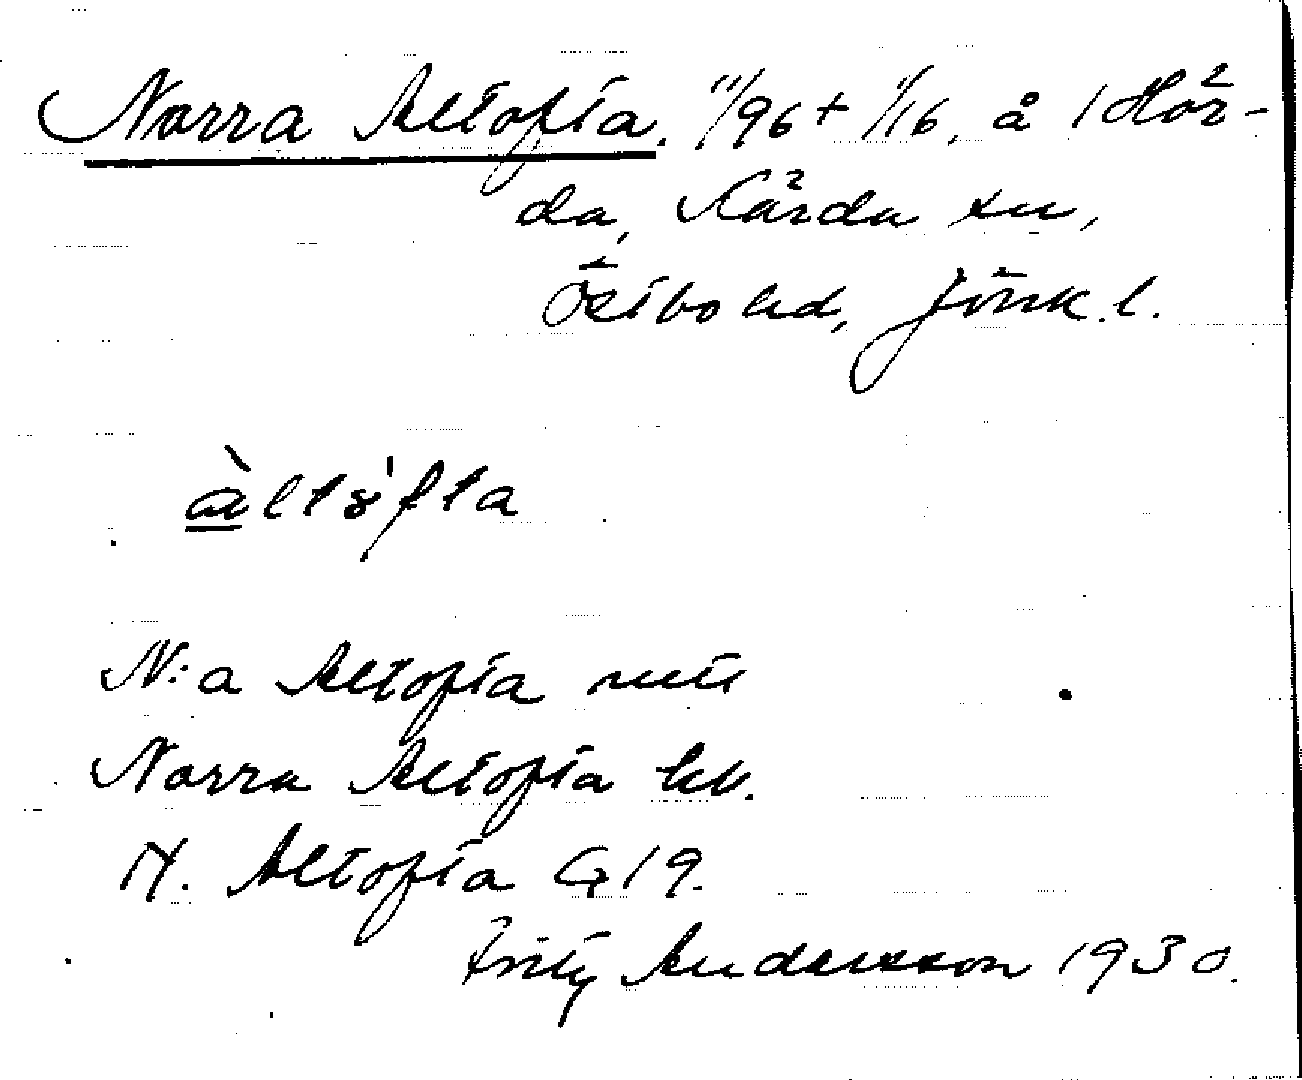 Norra Altofta. 11/96 + 1/16, å 1 Hör-
da, Kårda sn,
Östbo hd, Jönk. l.
àltòfta
N:a Altofta mtl
Norra Altofta hv.
N. Altofta G 19.
Fritz Andersson 1930.